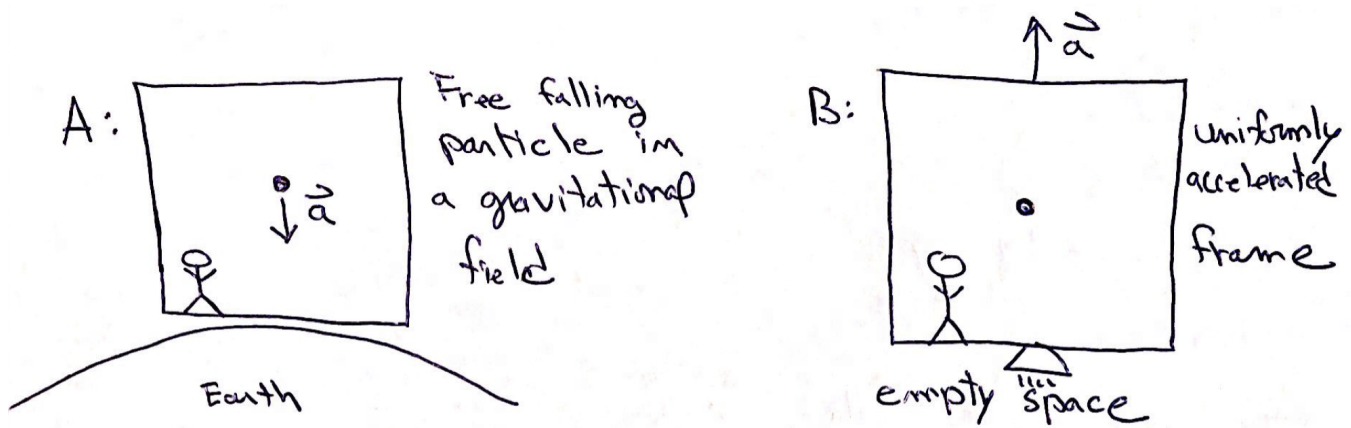 A:
Free falling
particle in
a gravitational
field
a
Earth
B:
a
uniformly
accelerated
frame
empty space